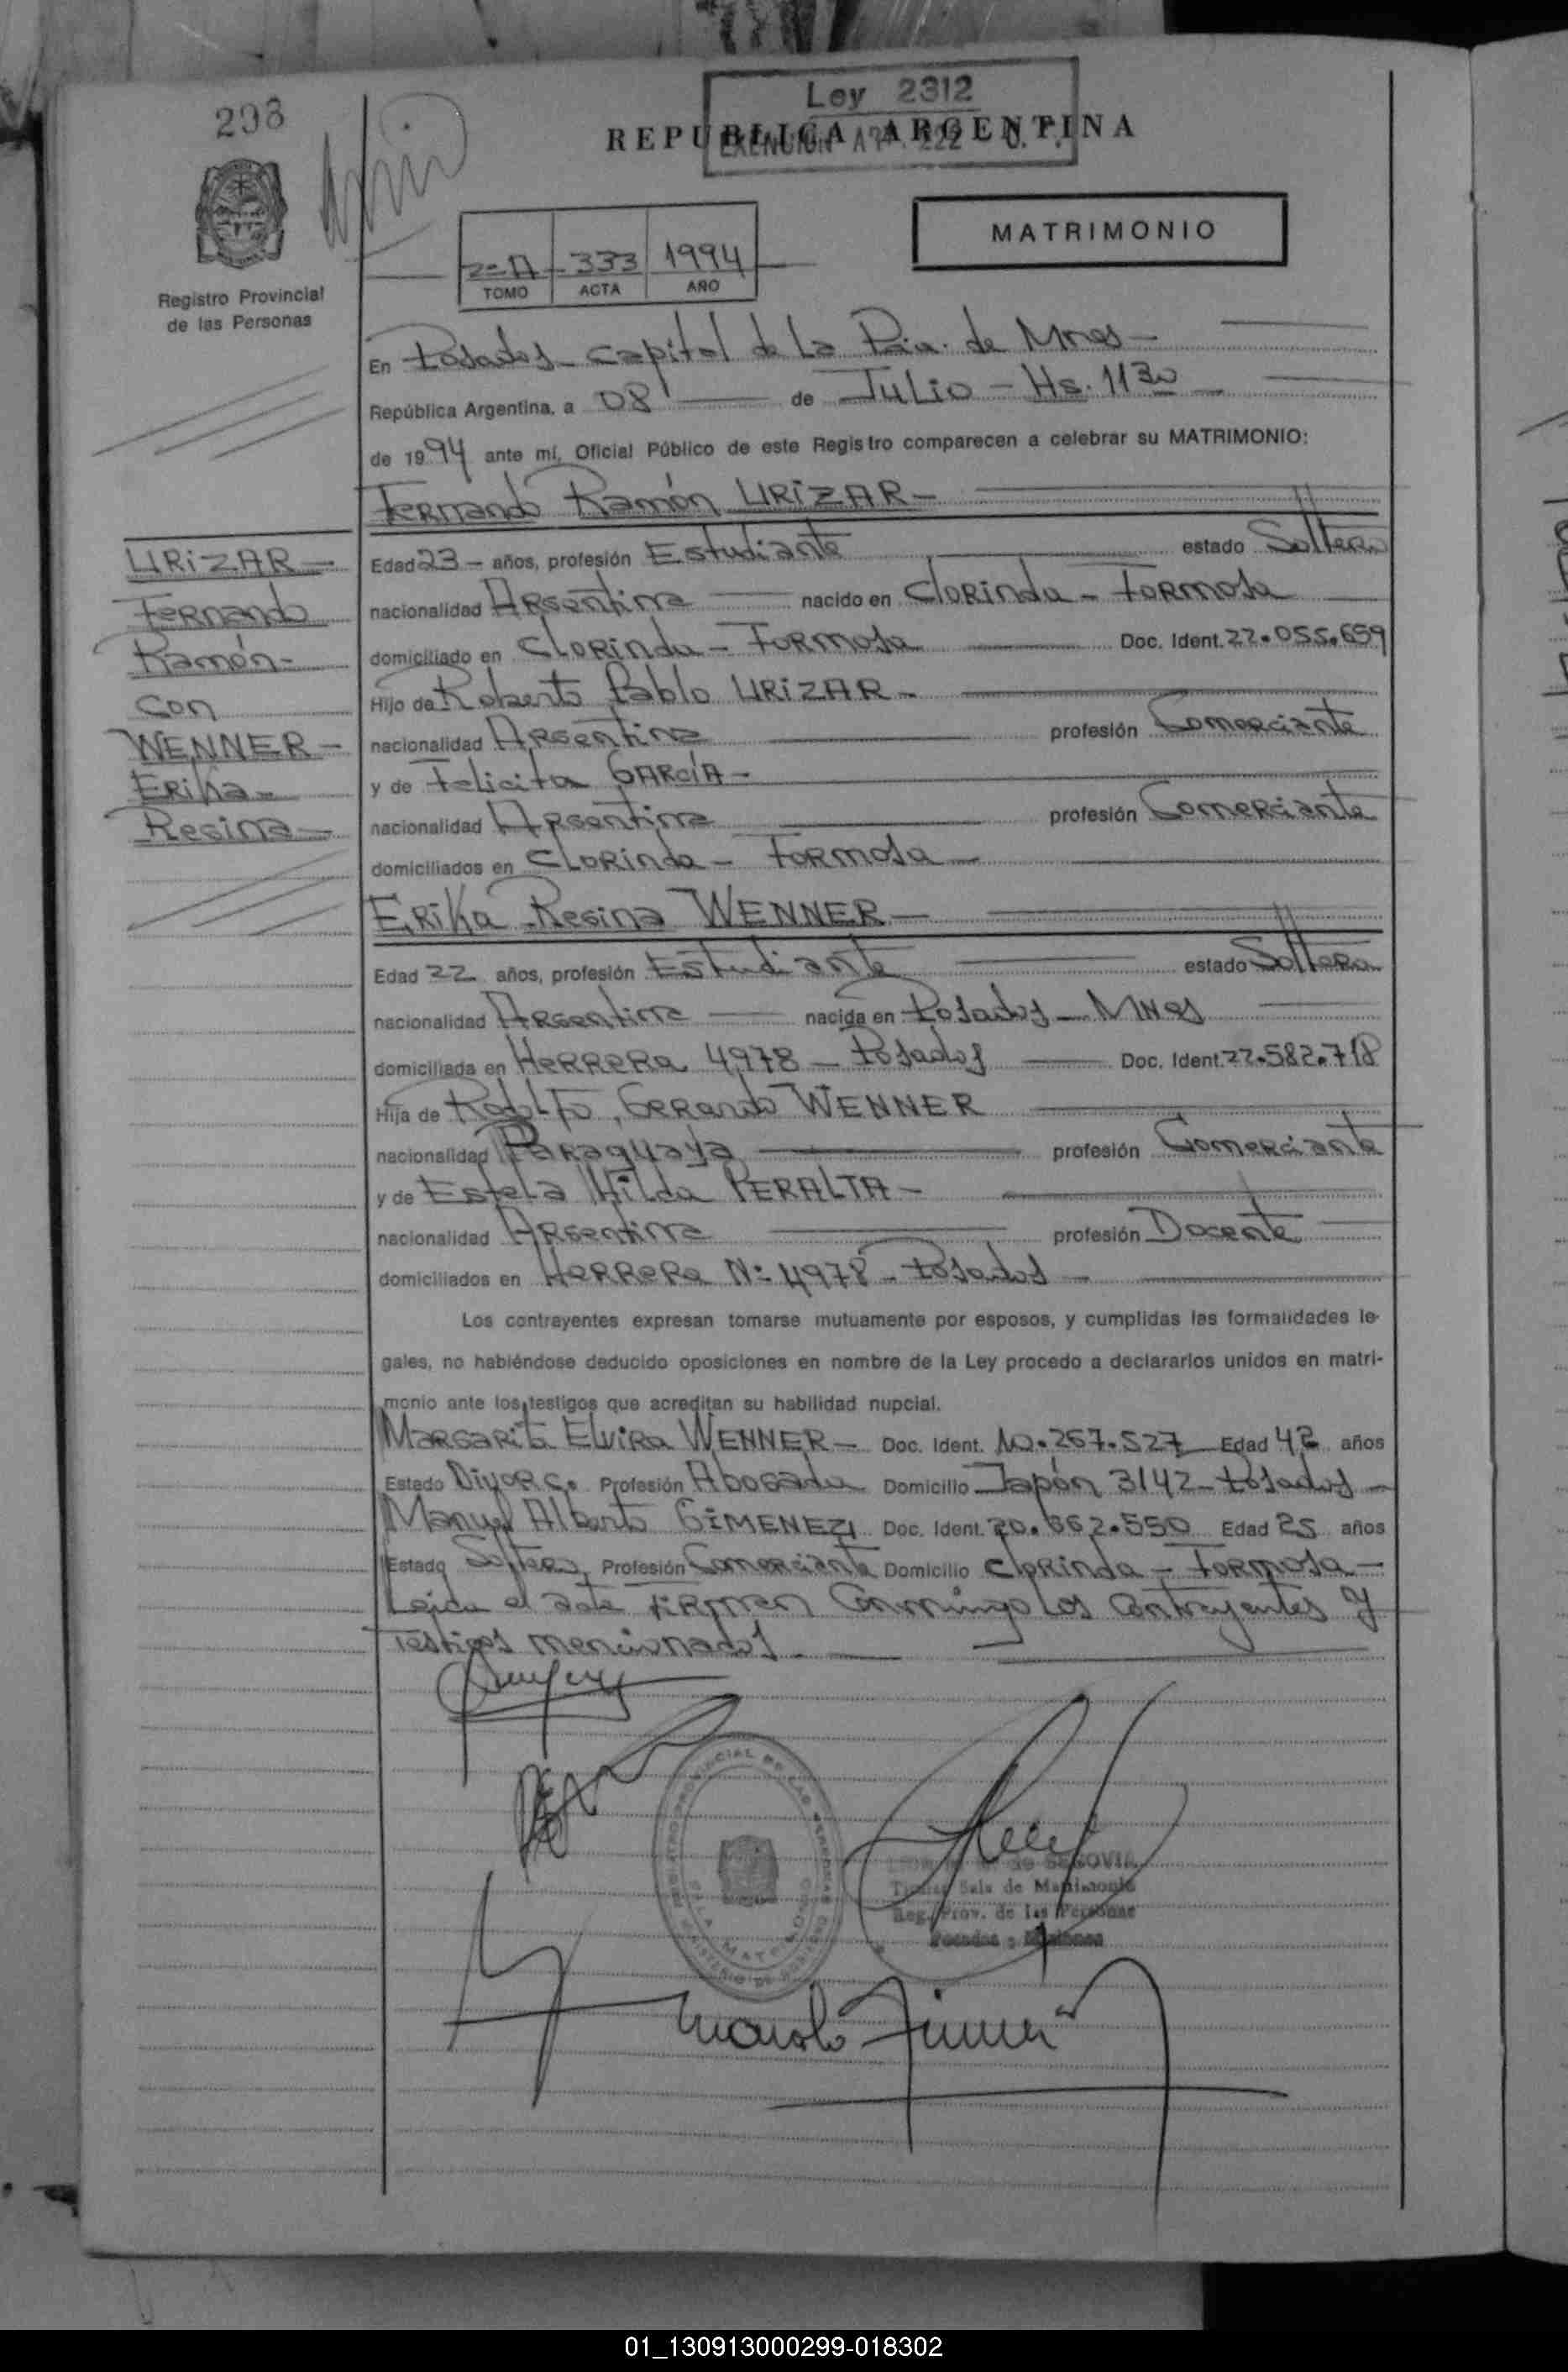 298
Ley 2312
REPUBLICA ARGENTINA
EXENCION
MATRIMONIO
333 1994
TOMO ACTA AÑO
Registro Provincial
de las Personas
En Posadas - Capital de La Pcia. de Mnes -
República Argentina, a 08 de Julio - Hs. 1130
de 1994 ante mí, Oficial Público de este Registro comparecen a celebrar su MATRIMONIO:
Fernando Ramón URIZAR -
URIZAR -
Fernando
Ramón -
Con
WENNER -
Erika -
Regina -
Edad 23 - años, profesión Estudiante estado Soltero
nacionalidad Argentina nacido en Clorinda - Formosa
domiciliado en Clorinda - Formosa Doc. Ident. 22.055.659
Hijo de Roberto Pablo URIZAR -
nacionalidad Argentina profesión Comerciante
y de Felicita GARCÍA -
nacionalidad Argentina profesión Comerciante
domiciliados en Clorinda - Formosa -
Erika Regina WENNER -
Edad 22 años, profesión Estudiante estado Soltera
nacionalidad Argentina nacida en Posadas - Mnes
domiciliada en Herrera 4978 - Posadas Doc. Ident. 22.582.718
Hija de Rodolfo Gerardo WENNER
nacionalidad Paraguaya profesión Comerciante
y de Estela Hilda PERALTA -
nacionalidad Argentina profesión Docente
domiciliados en Herrera Nº 4978 - Posadas -
Los contrayentes expresan tomarse mutuamente por esposos, y cumplidas las formalidades le-
gales, no habiéndose deducido oposiciones en nombre de la Ley procedo a declararlos unidos en matri-
monio ante los testigos que acreditan su habilidad nupcial.
Margarita Elvira WENNER - Doc. Ident. 10.267.527 Edad 42 años
Estado Divorc. Profesión Abogada Domicilio Japón 3142 - Posadas -
Manuel Alberto GIMENEZ Doc. Ident. 20.662.550 Edad 25 años
Estado Soltero Profesión Comerciante Domicilio Clorinda - Formosa -
Leída el acta Firman Conmigo Los Contrayentes y
Testigos mencionados -
de SEGOVIA
Sala de Matrimonio
Reg. Prov. de las Personas
Posadas - Misiones
01_130913000299-018302